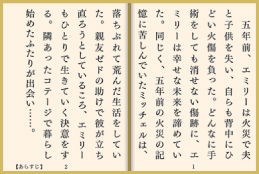 五年前、エミリーは火災で夫
と子供を失い、自らも背中にひ
どい火傷を負った。どんなに手
術をしても消せない傷跡に、エ
ミリーは幸せな未来を諦めてい
た。同じく、五年前の火災の記
憶に苦しんでいたミッチェルは、
1
落ちぶれて荒んだ生活をしてい
た。親友ゼドの助けで彼が立ち
直ろうとしているころ、エミリー
もひとりで生きていく決意をす
る。隣あったコテージで暮らし
始めたふたりが出会い……。
2
【あらすじ】